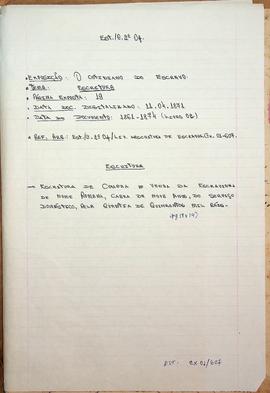 Est./O. 2º Of.
• Exposição: O Cotidiano do Escravo.
• Tema: Escritura
• Página Exposta: 19
• Data Doc. Digitalizado: 11.04.1871
• Data do Documento: 1861-1874 (Livro 02)
• Ref. Arq.: Est./O. 2º Of./ de Escravos, Cx. 01-607.
Escritura
— Escritura de Compra e venda da Escravizada
de nome Romana, cabra de nove anos, do serviço
doméstico, pela quantia de quinhentos mil réis.